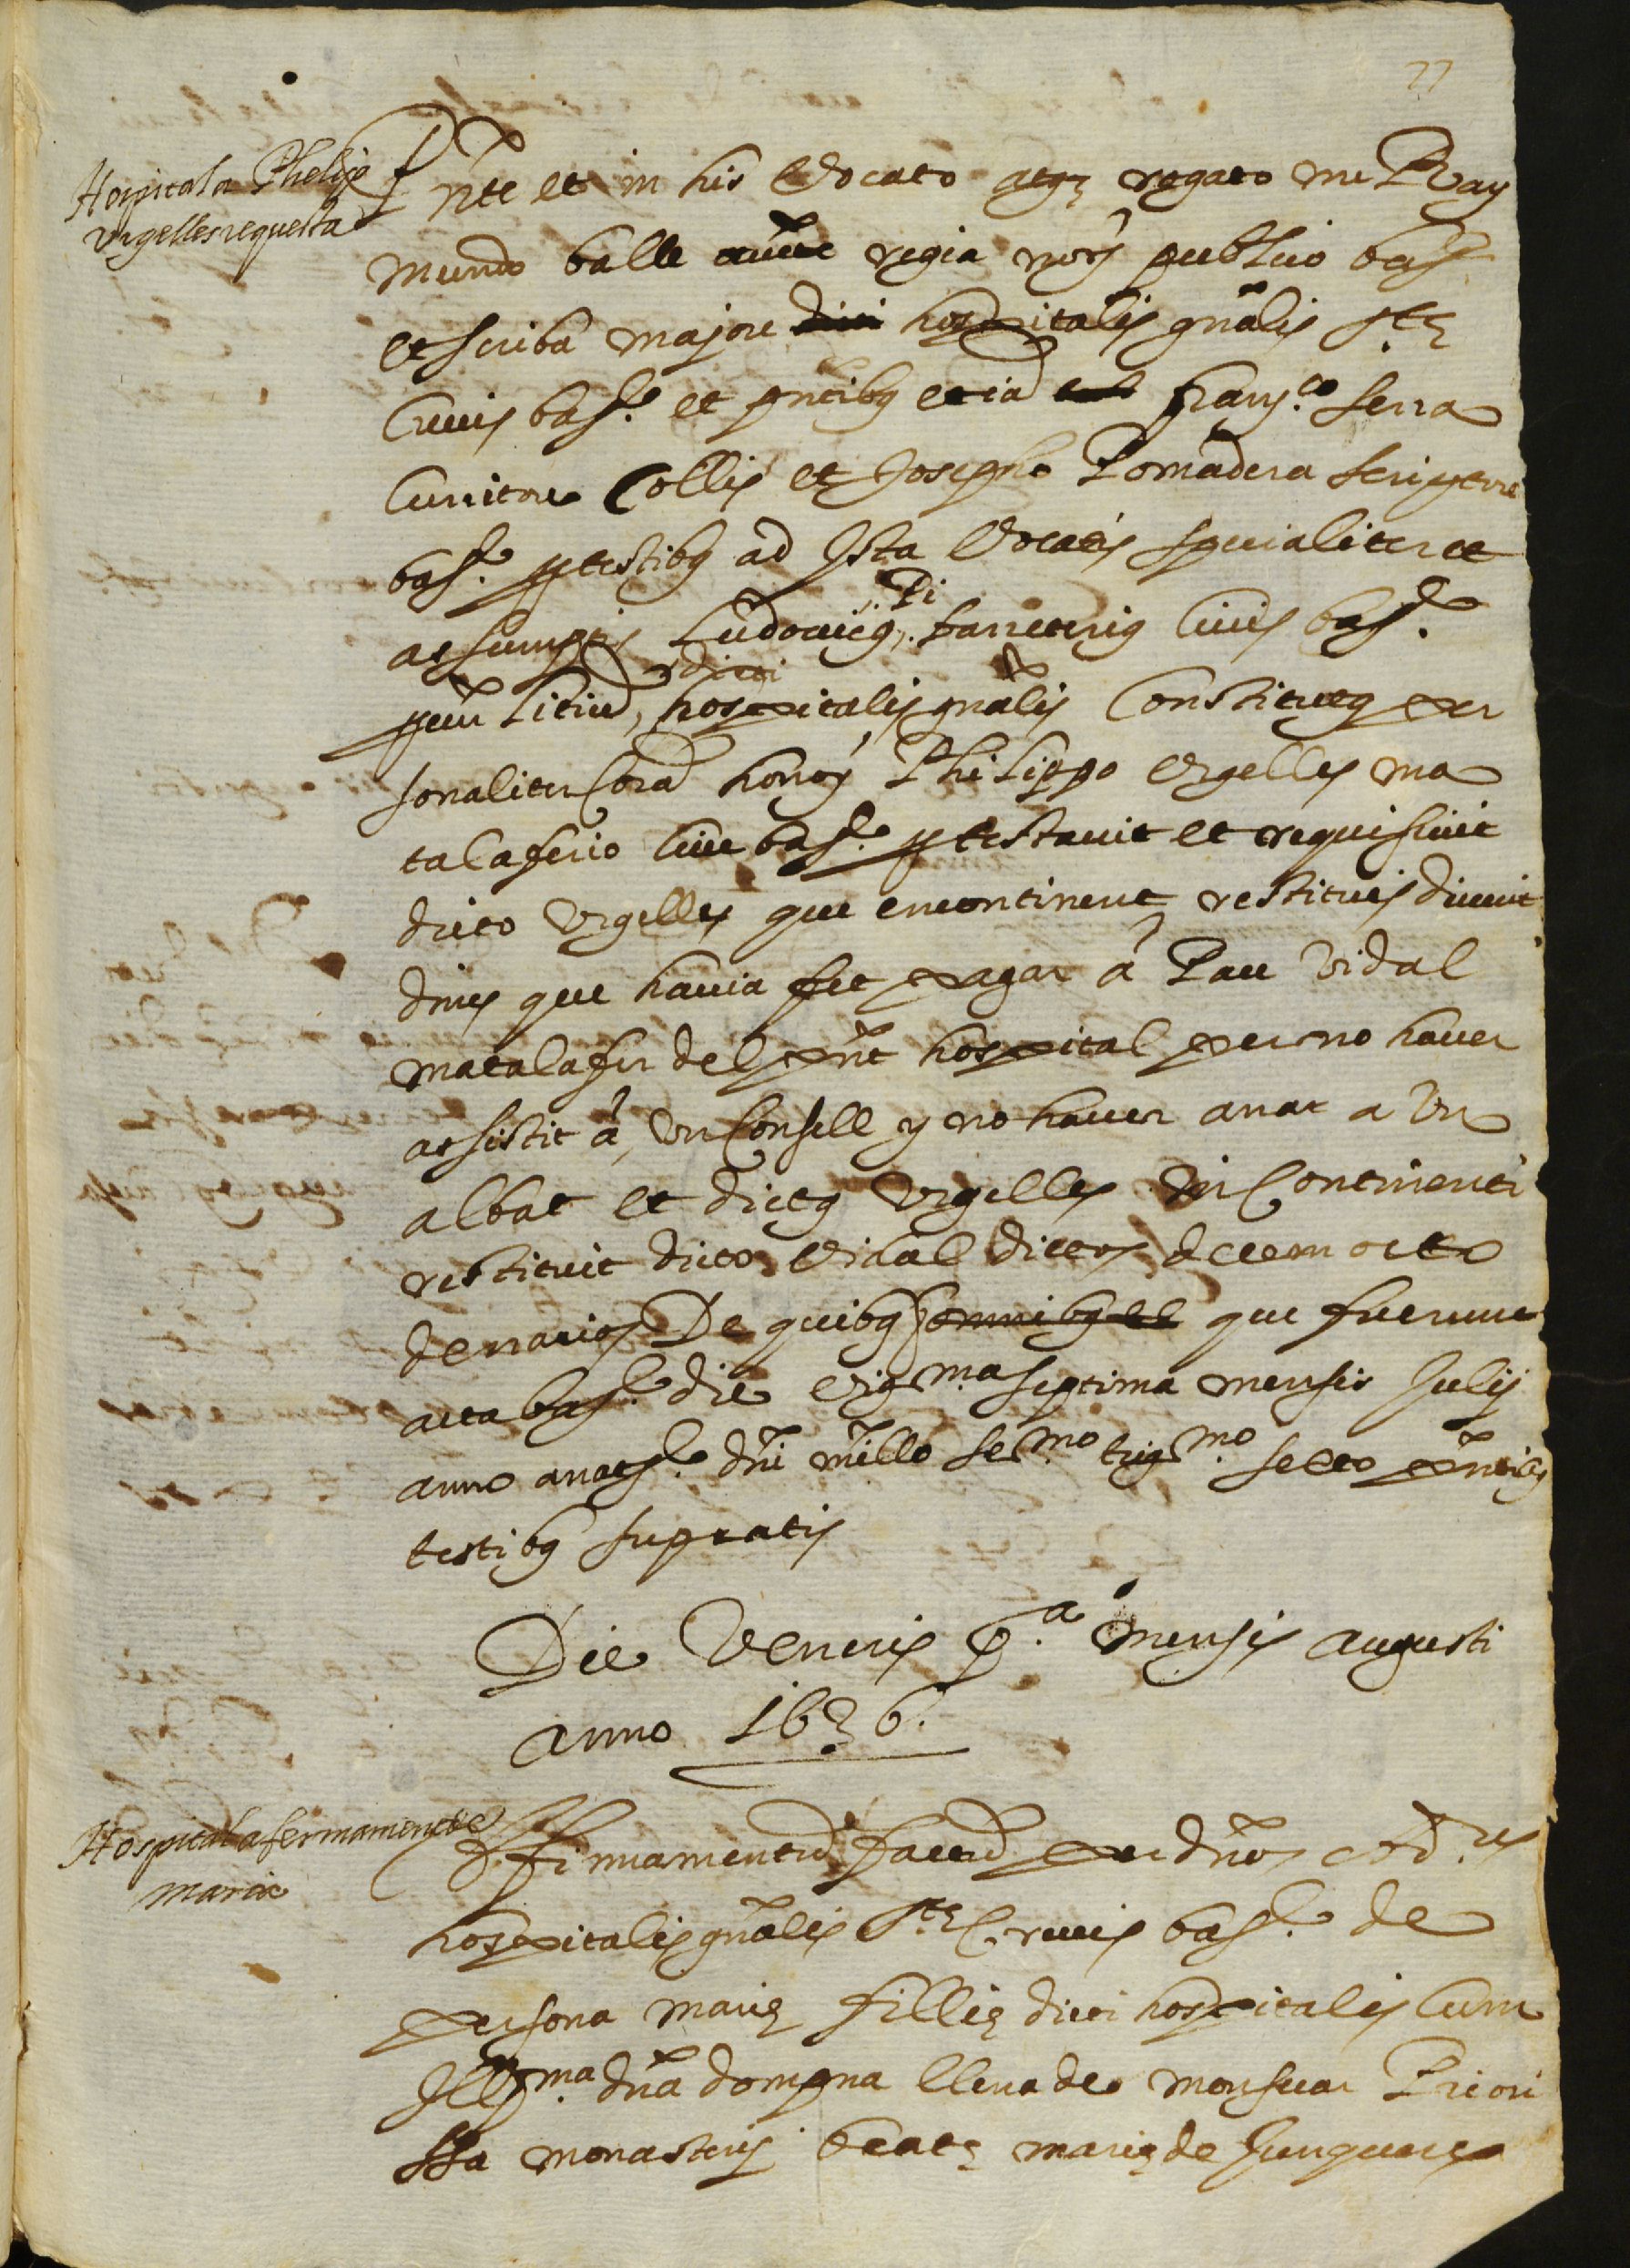 77
Hospitala Phelip
Urgelles requesta
Pnte et in his vocato atq rogato me Ray
mundo balle aucte regia nors publico bar
et scriba majore dicti hospitalis gnalis Ste
Crucis barne et pntibq etia franco serra
Curritore Collis et Josepho Pomadera scriptore
barne p testibq ad Ista vocatis specialiter et
assumptis Ludovicq Pi barreteriq Civis barne
dicti hospitalis gnalis Constitutq per
sonaliter Cora honor Philippo Urgelles ma
talaferio Cive barne ptestavit et requisivit
dicto Urgelles que encontinent restituis divuit
diners que havia fet pagar á Pau Vidal
matalafer del pnt hospital per no haver
assistit á un Consell y no haver anat a Un
albat et dictq Urgelles In Continenti
restituit dicto Vidal dictos decem octo
denarios De quibq omnibq et que fuerunt
acta barne die Vigma septima mensis Julij
anno a natte dni millo sexmo trigmo sexto pntibq
testibq supratis
Die Veneris pa mensis augusti
anno 1636.
Hospital afermament de
maria
Affirmamentu factu per dnos Adres
hospitalis gnalis Ste Crucis barne de
persona marie fillie dicti hospitalis Cum
Illma dna dompna Elena de monsuar Priori
ssa monasterij beate marie de Junqueres